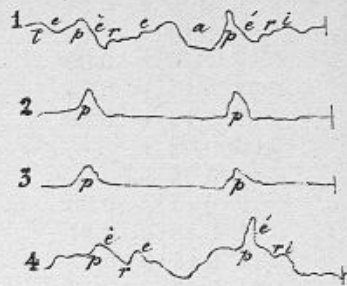 1 l e p è r e a p é r i
2 p p
3 p p
4 p è r e p é r i